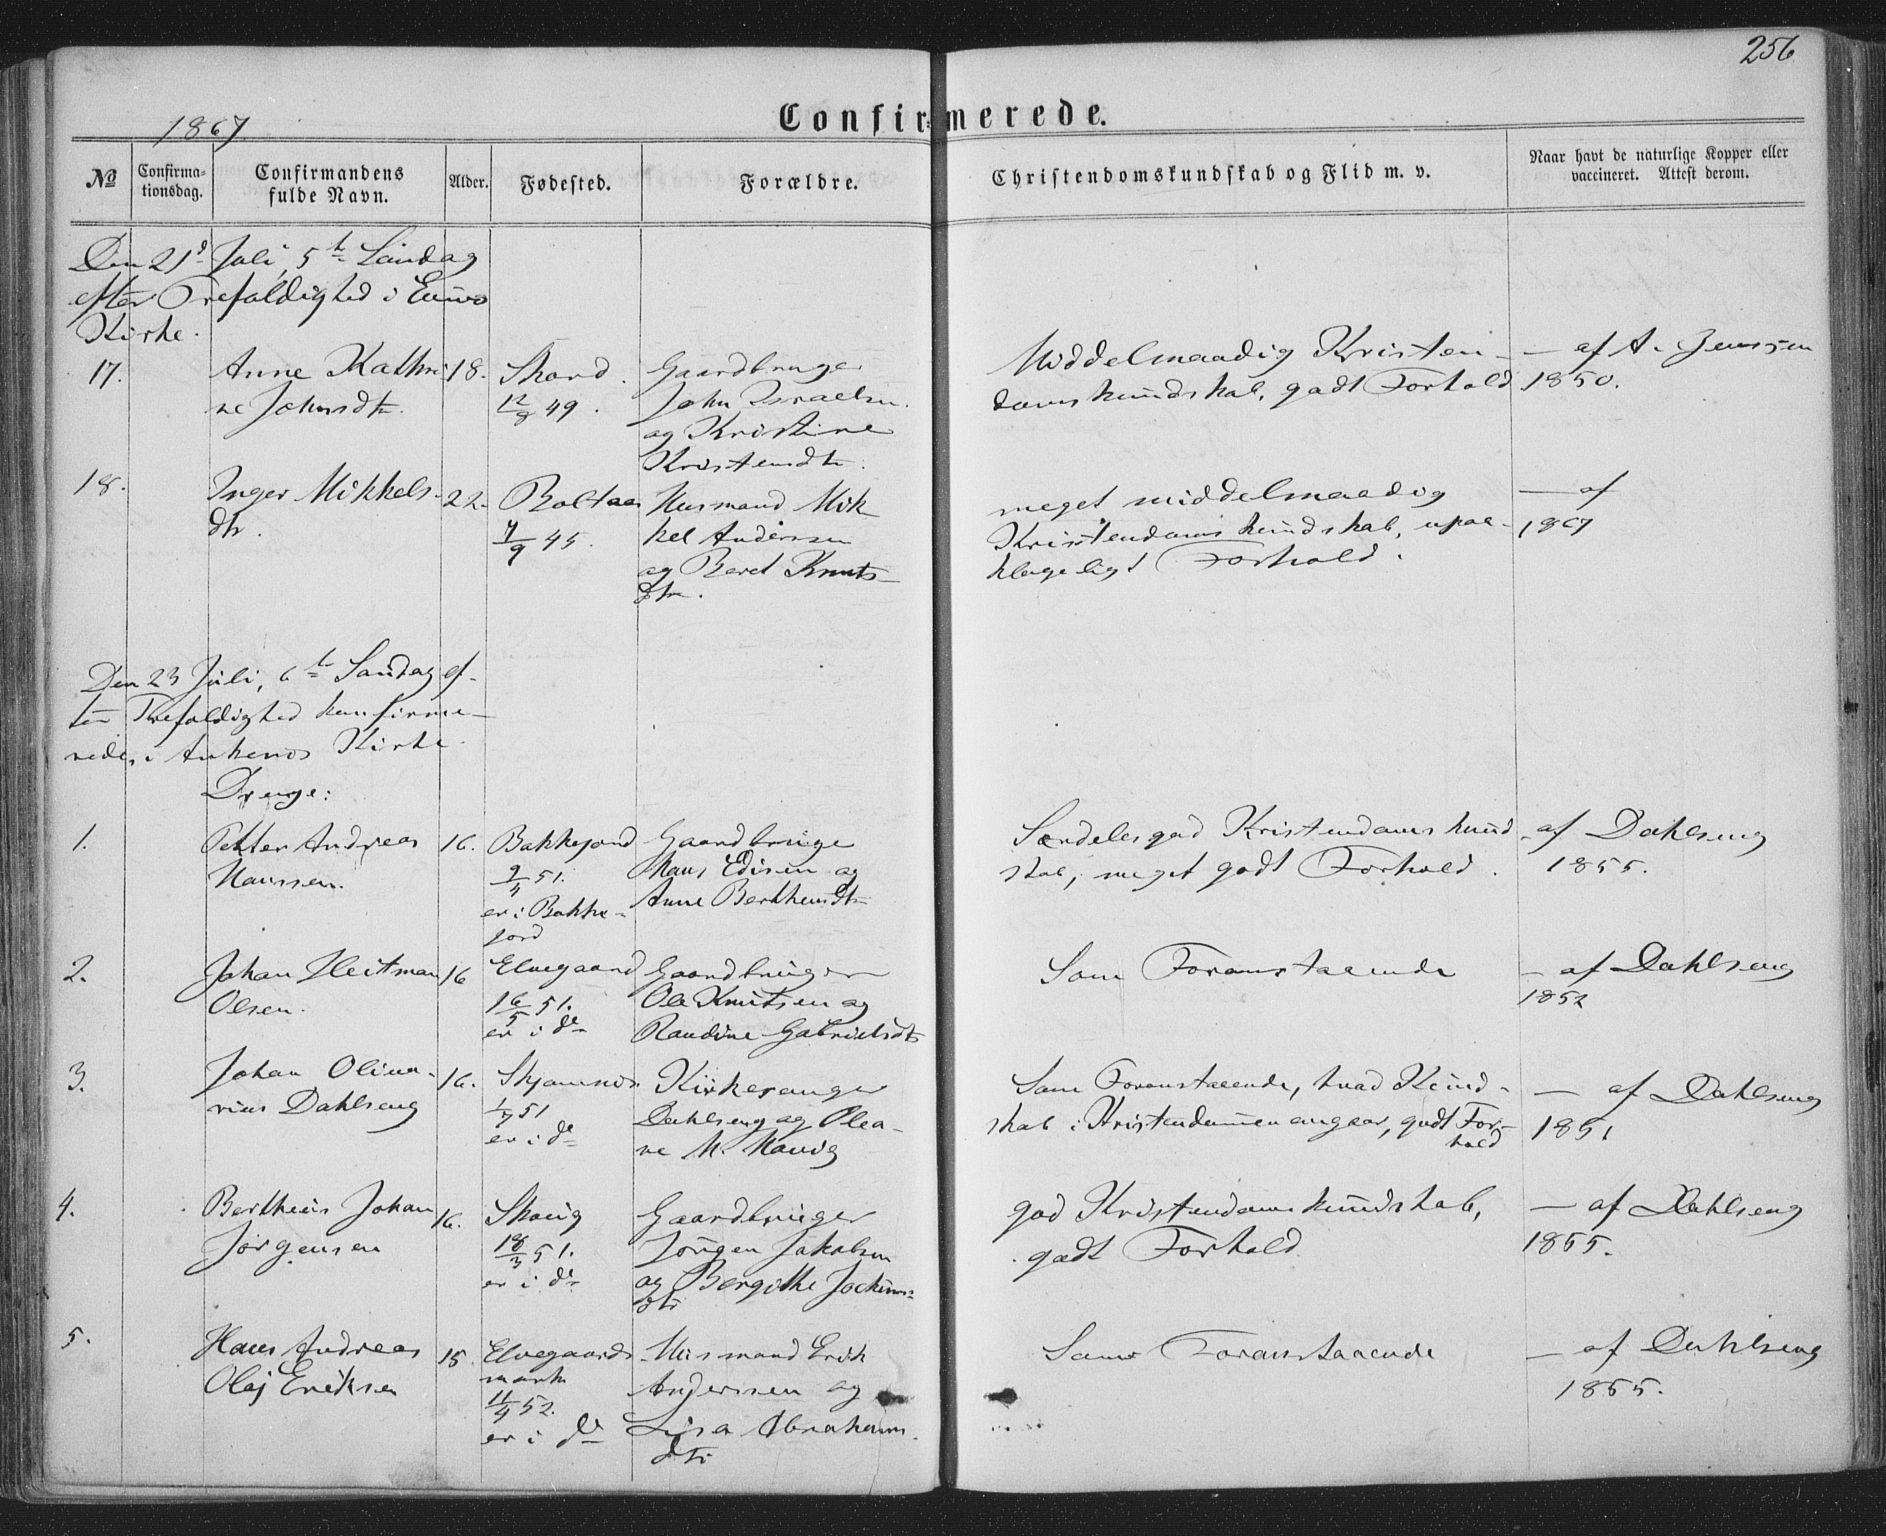 256
1867.
Confirmerede.
No
Confirma-
tionsdag.
Confirmandens
fulde Navn.
Alder.
Fødested.
Forældre.
Christendomskundskab og Flid m. v.
Naar havt de naturlige Kopper eller
vaccineret. Attest derom.
Den 21d Juli, 5t Søndag
efter Trefoldighed i
Kirke.
17.
Anne Kathri-
ne Johnsdtr.
18.
12/8 49.
Gaardbruger
John Israelsen
og Kristine
Kristensdtr.
Middelmaadig Kristen-
domskundskab, godt Forhold
— af A. Jenssen
1850.
18.
Inger Mikkels-
dtr.
22.
Boltaas
7/9 45.
Husmand Mik-
kel Anderssen
og Beret Knuts-
dtr.
meget middelmaadig
Kristendomskundskab, upaa-
klageligt Forhold.
— af
1867
Den 23 Juli, 6t Søndag ef-
ter Trefoldighed konfirme-
redes i Ankenes Kirke.
Drenge:
1.
Petter Andreas
Hanssen.
16.
Bakkejord
9/4 51.
er i Bakke-
jord
Gaardbruger
Hans Edisen og
Anne Bertheusdtr
Særdeles god Kristendomskund-
skab, meget godt Forhold.
— af Dahlseng
1855.
2.
Johan Heitman
Olsen.
16
Elvegaard
16/5 51.
er i do
Gaardbruger
Ole Knutsen og
Randine Gabrielsdtr
Som Foranstaaende
— af Dahlseng
1852
3.
Johan Oliva-
rius Dahlseng
16.
Skjomnes
1/7 51
er i do
Kirkesanger
Dahlseng og Olea-
ne M. Hauig
Som Foranstaaende, hvad Kund-
skab i Kristendommen angaar, godt For-
hold
— af Dahlseng
1851
4.
Bertheus Johan
Jørgensen
16.
18/3 51.
er i do
Gaardbruger
Jørgen Jakobsen
og Bergithe Jochums-
dtr
god Kristendomskundskab,
godt Forhold.
— af Dahlseng
1855.
5.
Hans Andreas
Olaj Eriksen
15.
Elvegaards
mark
11/4 52.
er i do
Husmand Erik
Anderssen og
Lisa Abrahams-
dtr
Som Foranstaaende
— af Dahlseng
1855.